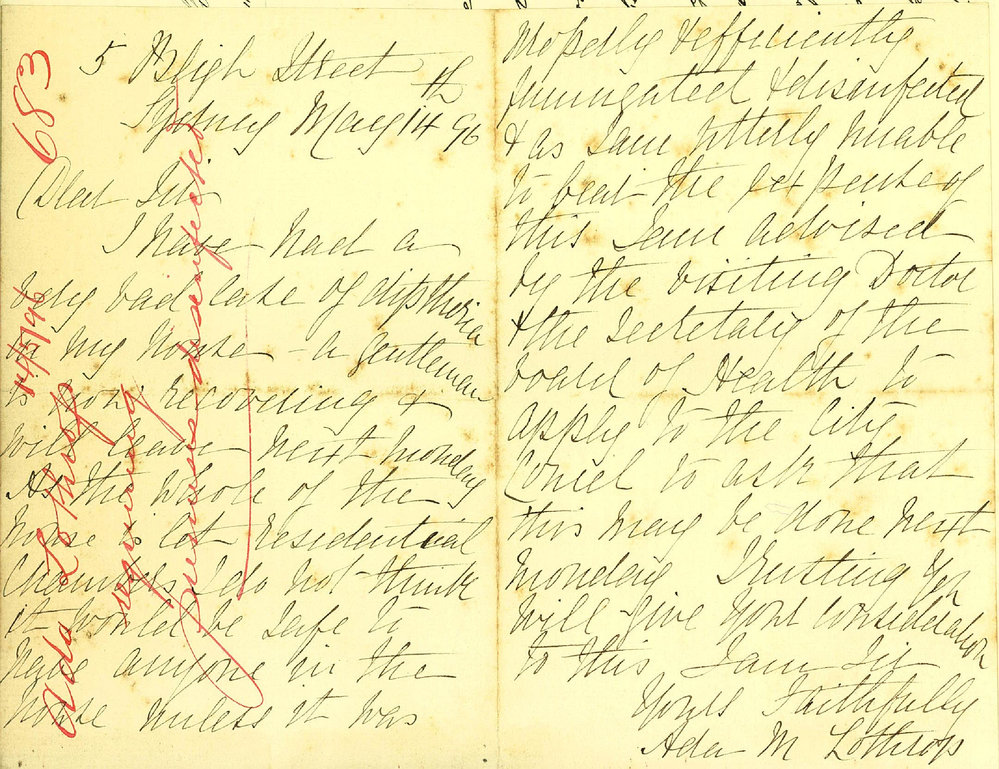 5 Bligh Street
Sydney May 14th 96
Dear Sir
I have had a
very bad case of diptheria
in my house - a gentleman
is now recovering &
will leave next monday
As the whole of the
house is let residentual
Chambers I do not think
it would be safe to
have anyone in the
house unless it was
properly & efficiently
fumigated & disinfected
& as I am utterly unable
to bear the expense of
this I am advised
by the visiting Doctor
& the Secretary of the
board of Health to
apply to the City
Council to ask that
this may be done next
monday Trusting you
will give your consideration
to this I am Sir
Yours Faithfully
Ada M Lothrop
683
14/5/96
Ada Lothrop
requiring
premises disinfected